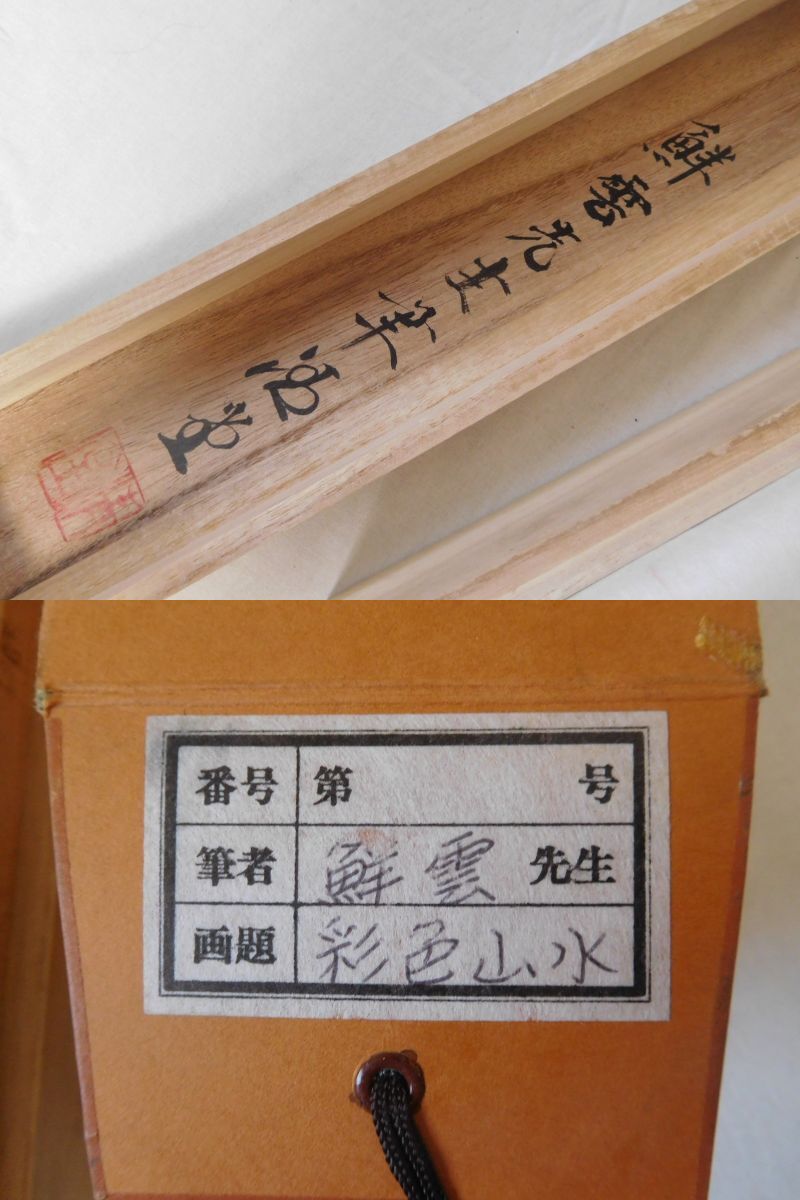 鮮雲先生筆
番号 第 号
筆者 鮮雲 先生
画題 彩色山水